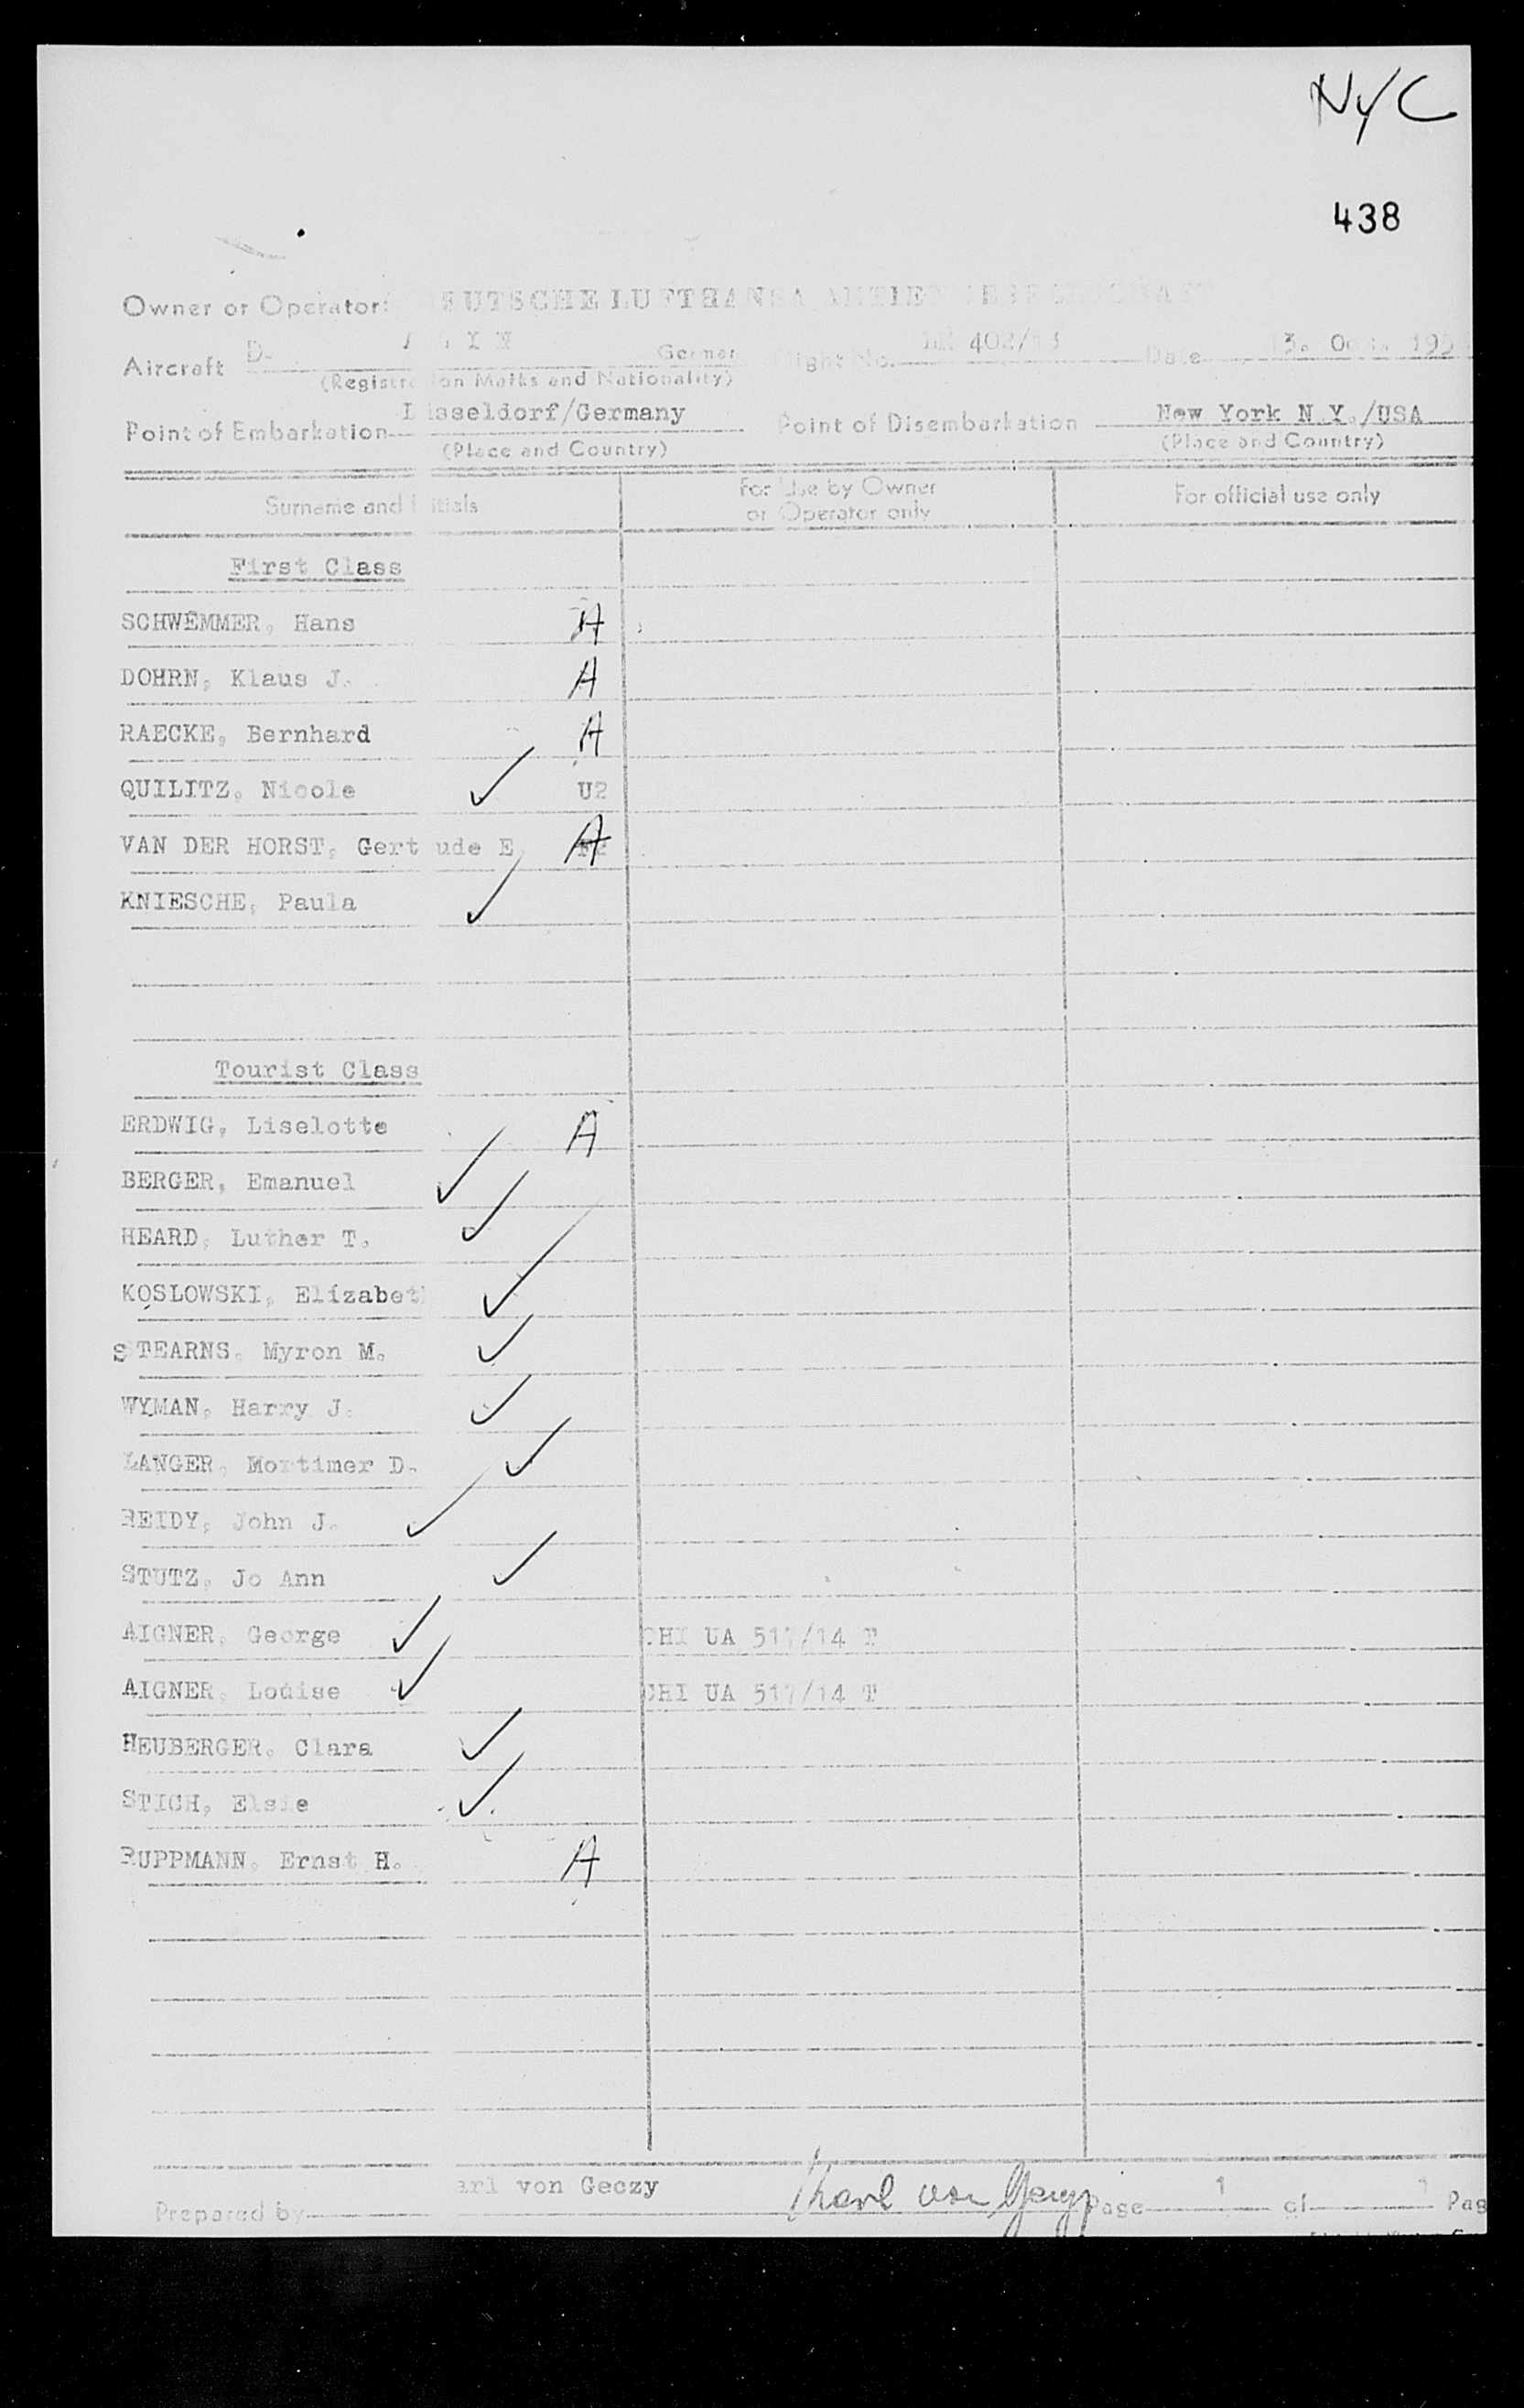 NYC
438
Owner or Operator: DEUTSCHE LUFTHANSA
Aircraft D- German Flight No. LH 402/13 Date 13. Oct. 195
(Registration Marks and Nationality)
Point of Embarkation Düsseldorf/Germany Point of Disembarkation New York N.Y./USA
(Place and Country) (Place and Country)
Surname and Initials For Use by Owner or Operator only For official use only
First Class
SCHWEMMER, Hans A
DOHRN, Klaus J. A
RAECKE, Bernhard A
QUILITZ, Nicole ✓ U2
VAN DER HORST, Gertrude E. A
KNIESCHE, Paula ✓
Tourist Class
ERDWIG, Liselotte A
BERGER, Emanuel ✓
HEARD, Luther T. ✓
KOSLOWSKI, Elizabeth ✓
STEARNS, Myron M. ✓
WYMAN, Harry J. ✓
LANGER, Mortimer D. ✓
REIDY, John J. ✓
STUTZ, Jo Ann ✓
AIGNER, George ✓ CHI UA 517/14 T
AIGNER, Louise ✓ CHI UA 517/14 T
HEUBERGER, Clara ✓
STICH, Elsie ✓
RUPPMANN, Ernst H. A
Prepared by Karl von Geczy Karl von Geczy Page 1 of 1 Pag